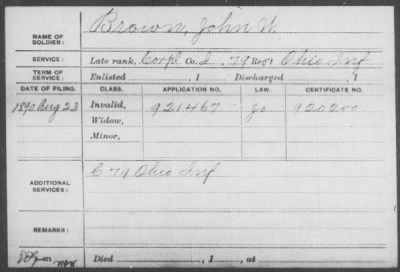 NAME OF SOLDIER: Brown, John W.
SERVICE: Late rank, Corpl Co. I, 79 Reg't Ohio Inf
TERM OF SERVICE: Enlisted , 1 Discharged , 1
DATE OF FILING. CLASS. APPLICATION NO. LAW. CERTIFICATE NO.
1890 Aug 23 Invalid, 921467 Jo 920200
Widow,
Minor,
ADDITIONAL SERVICES: C 79 Ohio Inf
REMARKS:
Died , 1 , at